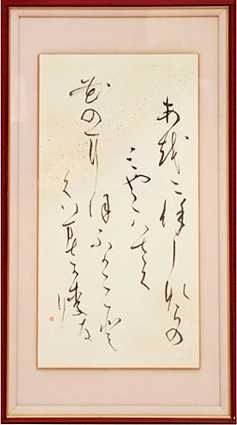 あをによしならの
みやこはさく
花のにほふかこと
くいまさかりなり